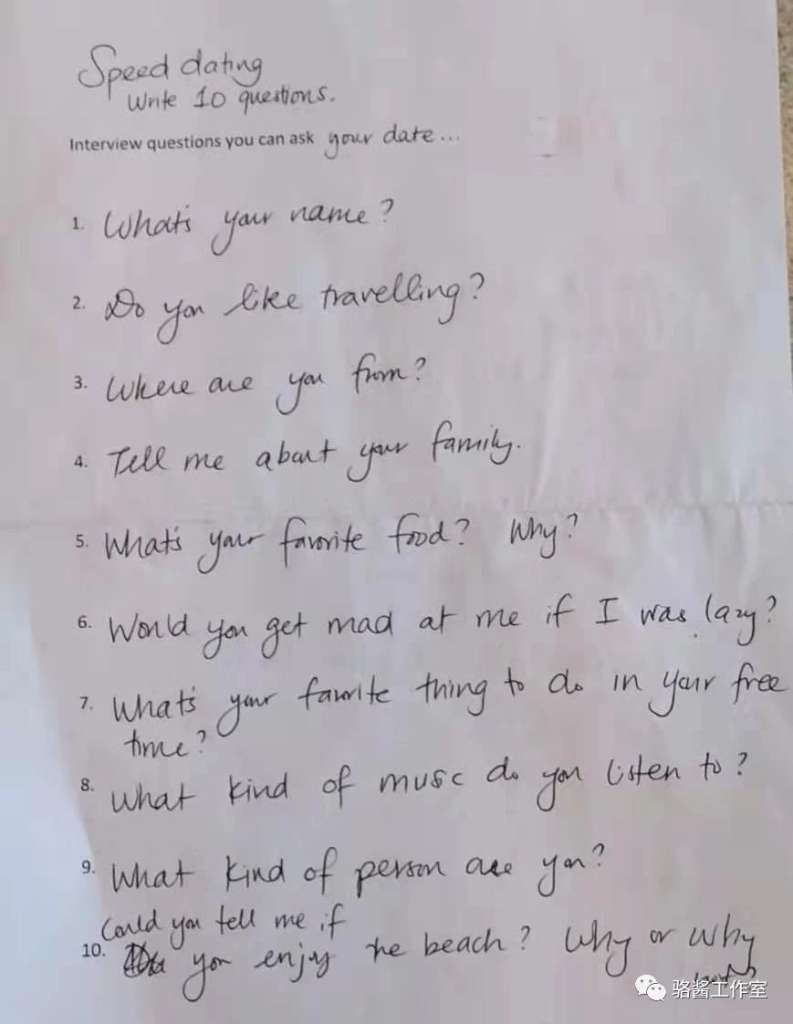 Speed dating
Write 10 questions.
Interview questions you can ask your date...
1. What's your name?
2. Do you like travelling?
3. Where are you from?
4. Tell me about your family.
5. What's your favorite food? Why?
6. Would you get mad at me if I was lazy?
7. What's your favorite thing to do in your free
time?
8. What kind of music do you listen to?
9. What kind of person are you?
Could you tell me if
10. you enjoy the beach? Why or why
骆酱工作室